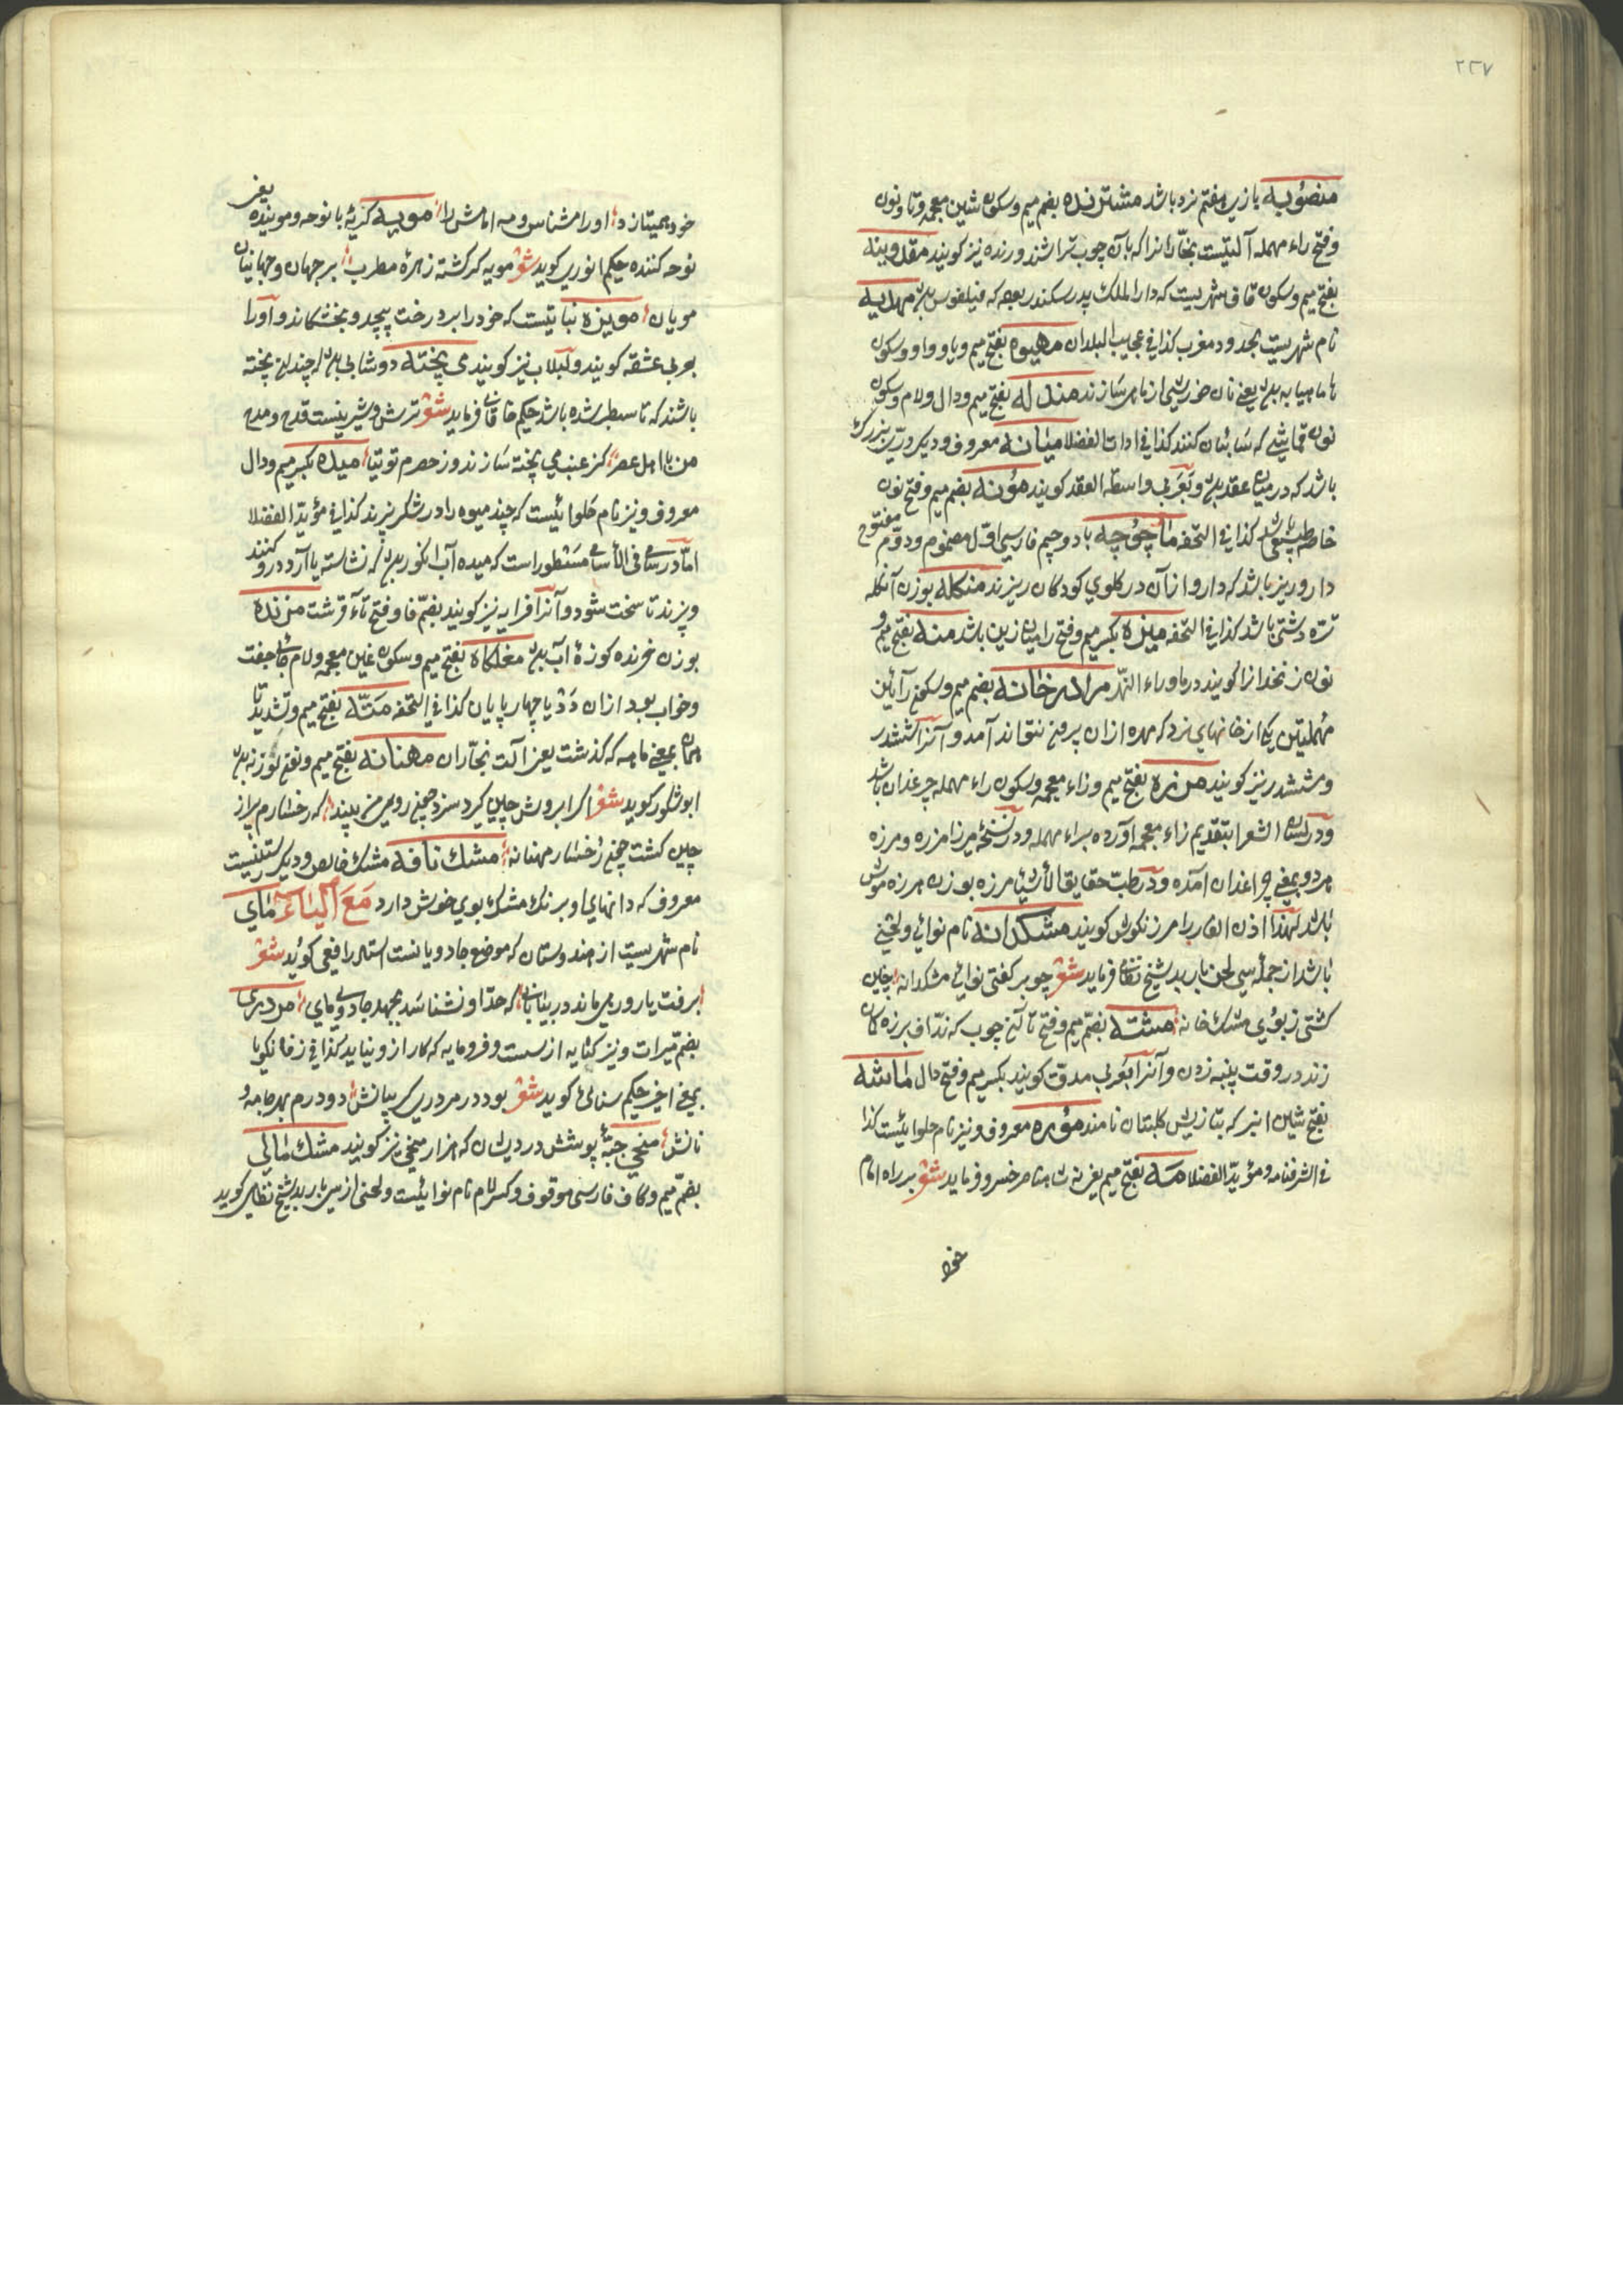 ٢٢٧
منصوبه بازی هفتم نرد باشد مشترنده بضم میم و سکون شین معجمه و تا و نون
و فتح راء مهمله آلتیست نجّارانرا که بآن چوب تراشند و رنده نیز کویند مقدوینه
بفتح میم و سکون قاف شهریست که دار الملک پدر سکندر بوده که فیلفوس بدن مهدیه
نام شهریست بحدود مغرب کذا فی عجایب البلدان مهیوه بفتح میم و یا و واو و سکون
ها ماهیابه بدن یعنی نان خورشی از ماهی سازند مندله بفتح میم و دال و لام و سکون
نون قماشی که سائبان کنند کذا فی ادات الفضلا میانه معروف و دیگر درّ بزرگ
باشد که در میان عقد بدن و بعربی واسطة العقد کویند مؤنه بضم میم و فتح نون
خاطر کذا فی التحفه ماچوچه با دو جیم فارسی اوّل مضموم و دوّم مفتوح
دارو ریز باشد که دارو از آن در کلوی کودکان ریزند منکله بوزن آنکله
تره دشتی باشد کذا فی التحفه میزه بکسر میم و فتح را میان زین باشد منه بفتح میم و
نون زنخدانرا کویند در ماوراء النهر مرادرخانه بضم میم و سکون رآئین
مهملتین یکی از خانهای نرد که مهره ازان بیرون نتواند آمد و آنرا ششدر
و مششدر نیز کویند مزره بفتح میم و زاء معجمه و سکون راء مهمله چرغدان باشد
و در لسان الشعرا بتقدیم زاء معجمه آورده براء مهمله و در نسخهٔ میرزا مزره و مرزه
هر دو بمعنی چراغدان آمده و در طبّ حقایق الأشیا مرزه بوزن هرزه موش
باشد لهذا اذن الفار را مرزنکوش کویند مشکدانه نام نوائی و لحنی
باشد از جمله سی لحن باربد شیخ نظامی فرماید شعر چو بر کفتی نوای مشکدانه ؛ جهان
کشتی ز بوی مشک خانه ؛ مشته بضم میم و فتح تا آلتی چوب که ندّاف بر زه کمان
زند در وقت پنبه زدن و آنرا بعربی مدقّ کویند بکسر میم و فتح دال ماشه
بفتح شین انبر که بتازیش کلبتان نامند مؤره معروف و نیز نام حلوائیست کذا
فی الشرفنامه و مؤید الفضلا مه بفتح میم یعنی نه شاعر خسرو فرماید شعر بر راه امام
خود
خود همیتازد ؛ او را مشناس و مه امامش را ؛ مویه کریهٔ با نوحه و مویندهٔ یعنی
نوحه کننده حکیم انوری کوید شعر مویه کر کشته زهرهٔ مطرب ؛ بر جهان و جهانیان
مویان ؛ مویزه نباتیست که خود را بر درخت پیچد و بخشکاند و آورا
بعربی عشقه کویند و لبلاب نیز کویند می پخته دوشابی بدن که چندان پخته
باشند که تا سطبر شده باشد حکیم خاقانی فرماید شعر ترش و شیرینست قدح و مدح
من با اهل عصر ؛ کز عنب می پخته سازند و ز حصرم توتیا ؛ میده بکسر میم و دال
معروف و نیز نام حلوائیست که چند میوه را در شکر بپزند کذا فی مؤید الفضلا
امّا در سامی فی الأسامی مسطور است که میده آب انکور بدن که نشاسته یا آرد درو کنند
و پزند تا سخت شود و آنرا فراته نیز کویند بضمّ فا و فتح تاء قرشت مزنده
بوزن خرنده کوزهٔ آب بدن مغلکاه بفتح میم و سکون غین معجمه و لام جای خفت
و خواب بعد ازان دد یا چهار پایان کذا فی التحفه متّه بفتح میم و تشدید تا
همان بمعنی ماهه که کذشت یعنی آلت نجّاران مهنانه بفتح میم و نون بوزنه بدن
ابو شکور کوید شعر اکر ابروش چین کرد سزد چین روی من بیند ؛ که رخسارم پر از
چین کشت چون رخسار مهنانه ؛ مشک نافه مشک خالص و دیکر رستنیست
معروف که دانهای او برنک مشک بوی خوش دارد مع الیاء مای
نام شهریست از هندوستان که موضع جادویانست استاد رافعی کوید شعر
برفت یار و رهی ماند در بیابانی ؛ که حدّ او نشناسد بجهد جادوی مای ؛ مردری
بضمّ میراث و نیز کنایه از سست و فرومایه که کار ازو نیاید کذا فی زفان کویا
بمعنی اخیر حکیم سنائی کوید شعر بود در مردری کریبانش ؛ دو درم بهر جامه و
نانش ؛ منخی جبّهٔ پوشش درویشان که هزار میخی نیز کویند مشک مالی
بضمّ میم و کاف فارسی موقوف و کسر لام نام نوائیست و لحنی از سی باربد شیخ نظامی کوید